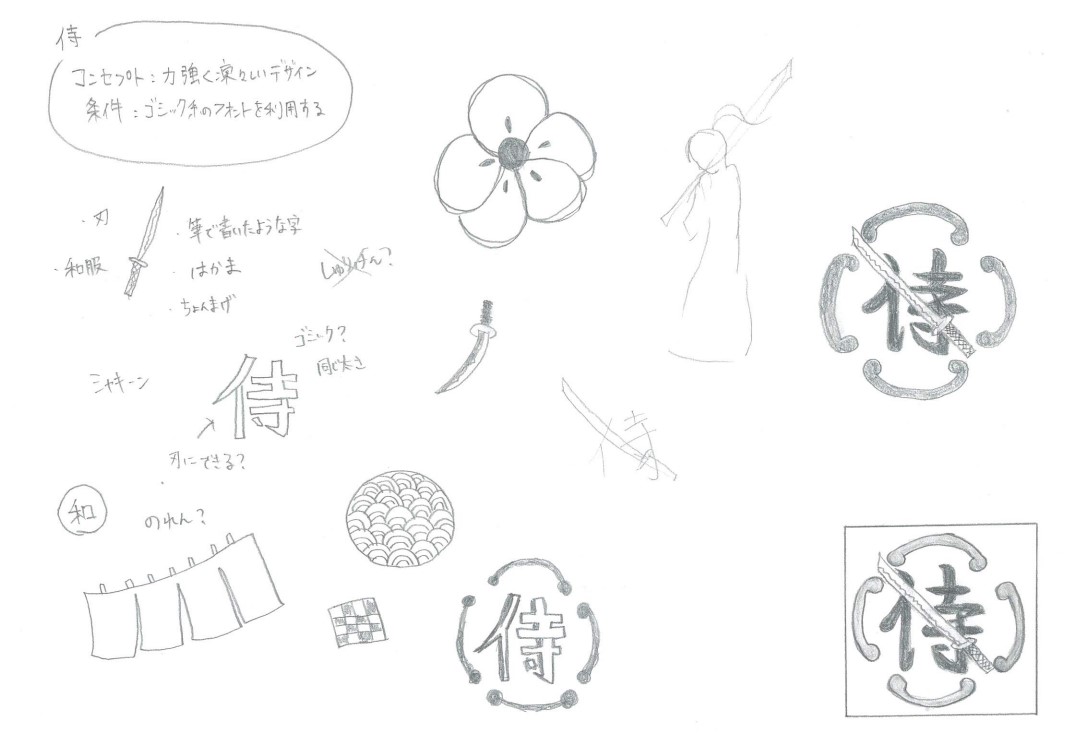 侍
コンセプト：力強く凛々しいデザイン
条件：ゴシック系のフォントを利用する
・刃
・和服
・筆で書いたような字
・はかま
・ちょんまげ
しゅりけん？
ゴシック？
同じ太さ
シャキーン
侍
刃にできる？
和
のれん？
侍
侍
侍
侍